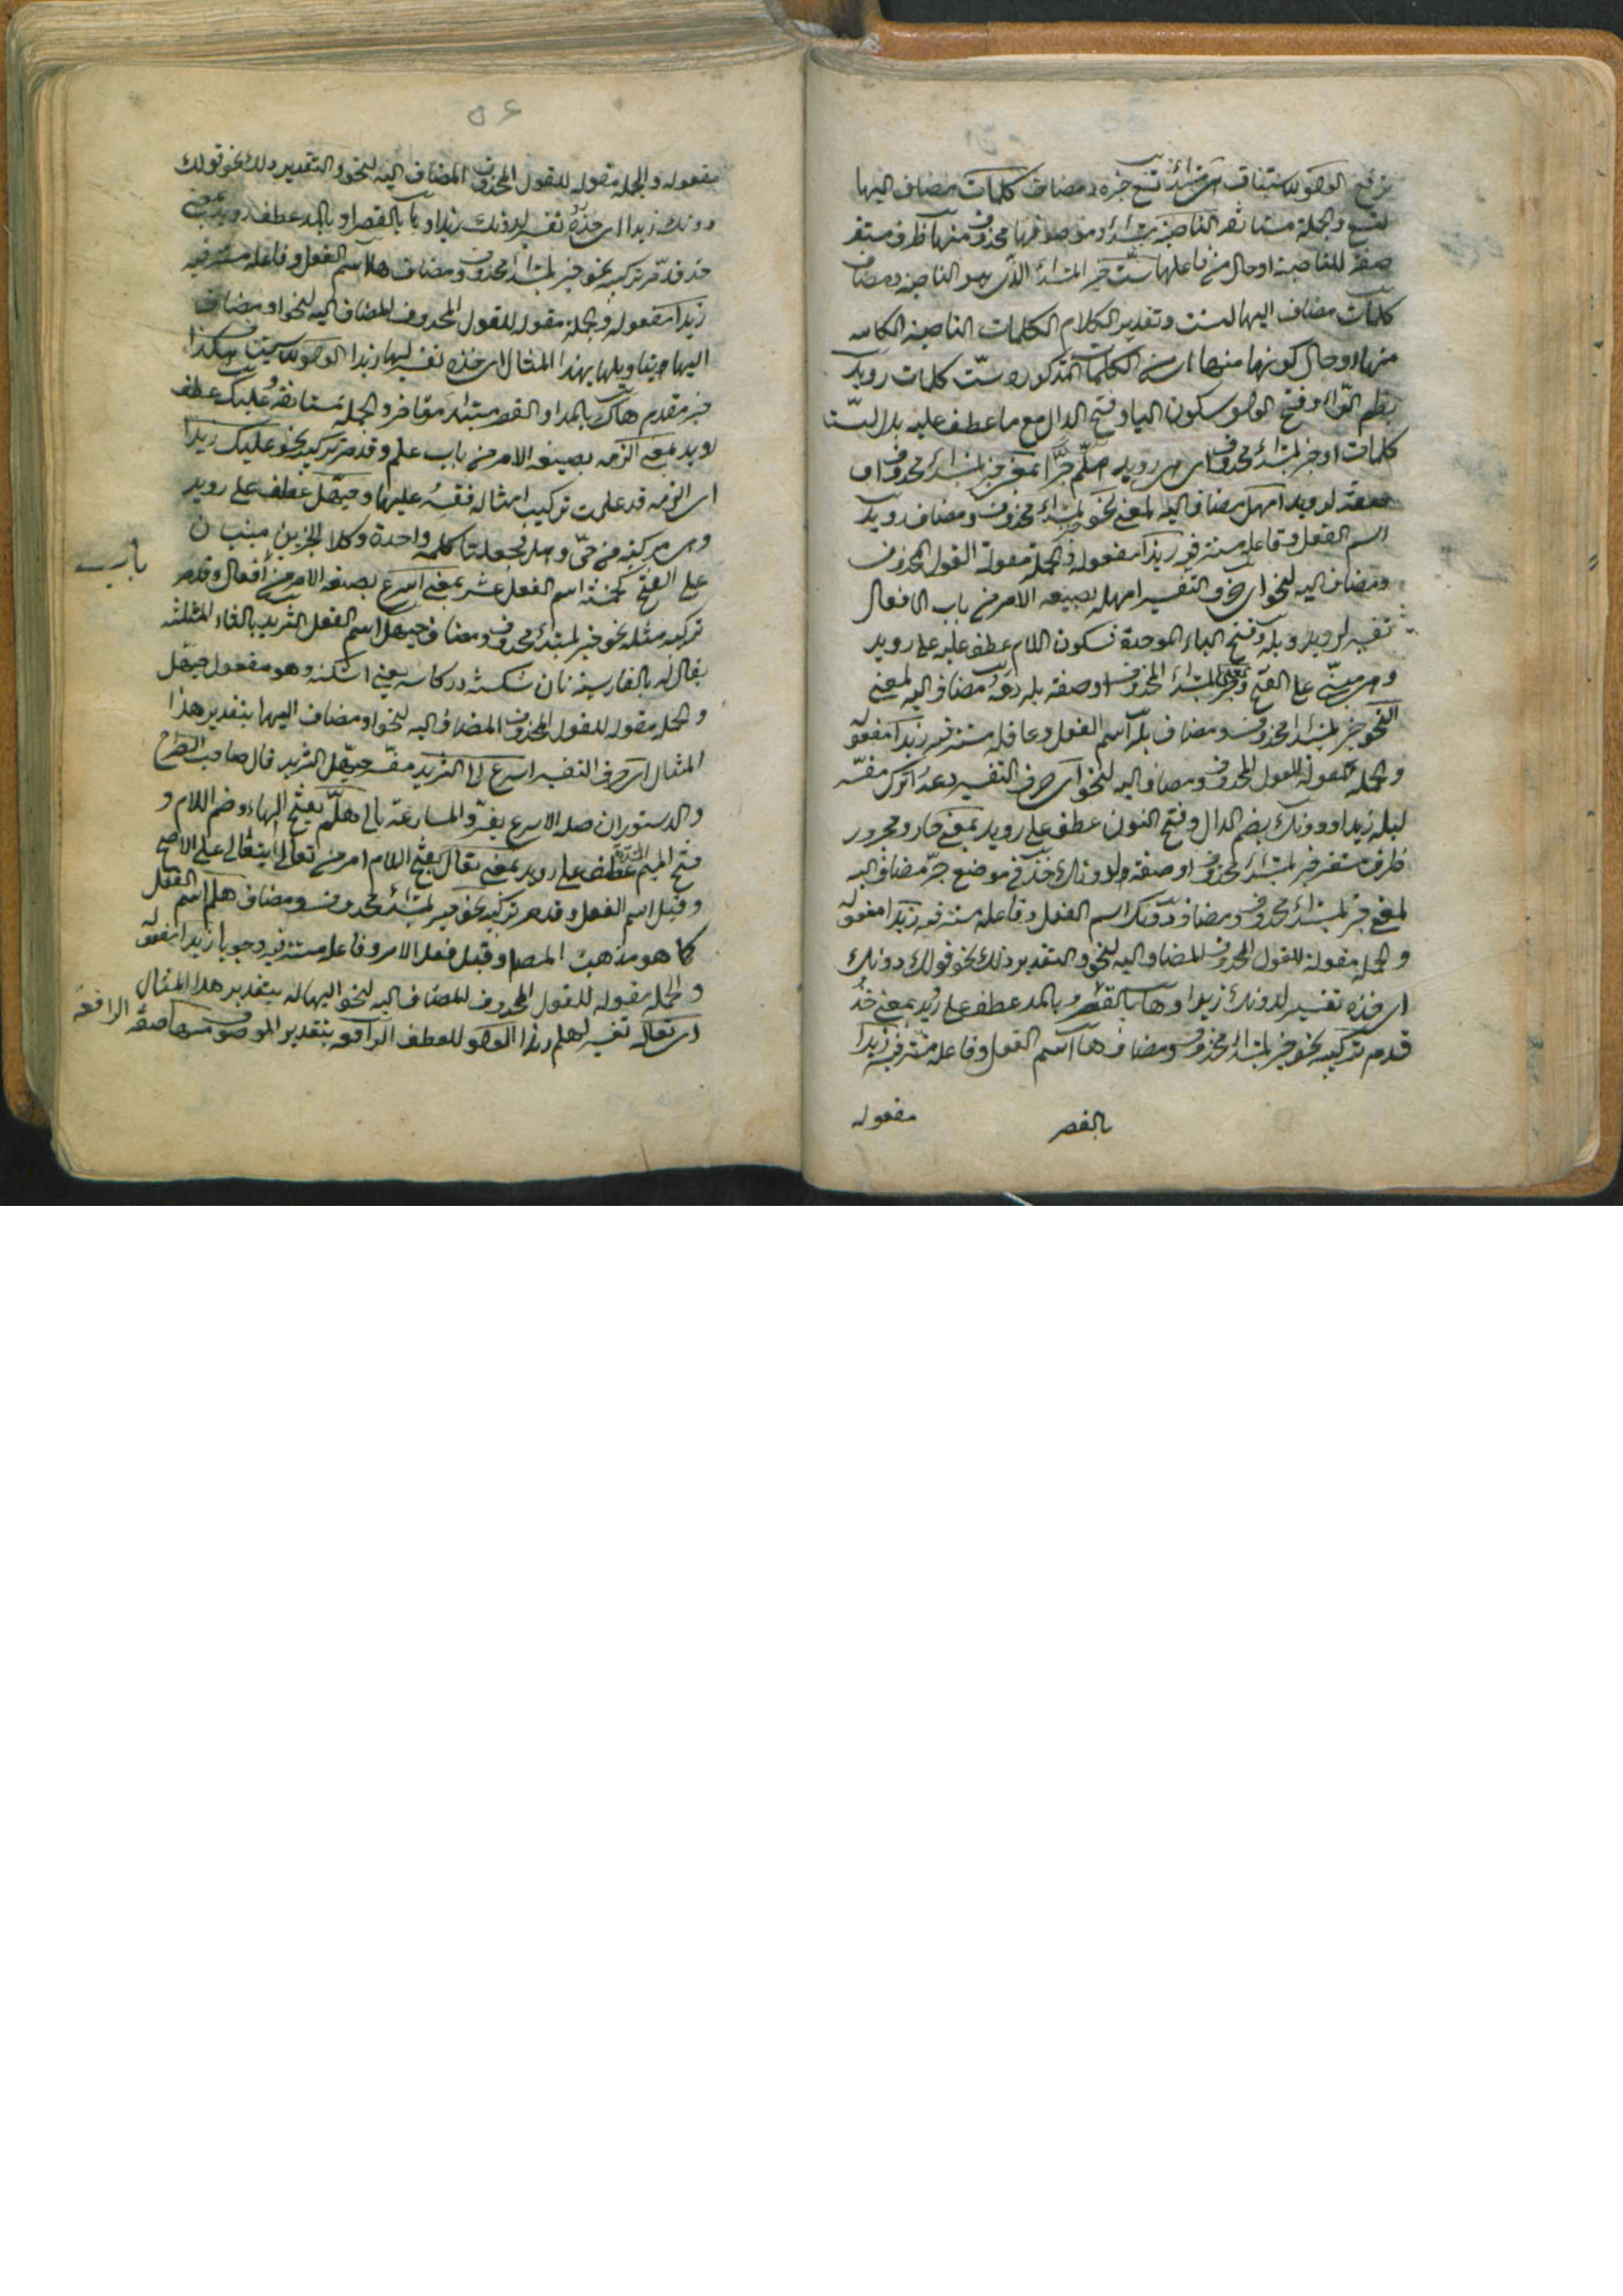 يرفع الواو للاستيناف هي مبتدأ تسع خبره ومضاف كلمات مضاف اليها
لتسع والجملة مستانفة الناصبة مبتدأ وموصوفها محذوف منها ظرف مستقر
صفة للناصبة او حال من فاعلها ستّ خبر المبتدأ الذى هو الناصبة ومضاف
كلمات مضاف اليها لست وتقدير الكلام الكلمات الناصبة الكاينة
منها او حال كونها منها اى من الكلمات المذكورة ستّ كلمات رويد
بضم الراء وفتح الواو وسكون اليا وفتح الدال مع ما عطف عليه بدل الستّ
كلمات او خبر لمبتدأ محذوف اى هى رويد هلمّ جرّا بمعنى خبر لمبتدأ محذوف او
صفة لرويد امهل مضاف اليه لمعنى نحو خبر لمبتدأ محذوف ومضاف رويد
اسم الفعل وفاعله مستتر فيه زيدا مفعوله والجملة مقولة القول المحذوف
ومضاف اليه لنحو اى حرف التفسير امهله بصيغه الامر من باب الافعال
تفسير لرويد وبله وفتح الباء الموحدة وسكون اللام عطف عليه على رويد
وهى مبنىّ على الفتح بمعنى خبر لمبتدأ المحذوف او صفة بله دع مضاف اليه لمعنى
النحو خبر لمبتدأ محذوف ومضاف بله اسم الفعل وفاعله مستتر فيه زيدا مفعوله
والجملة مقولة للقول المحذوف ومضاف اليه لنحو اى حرف التفسير دعه اترك مفسّر
لبله زيدا ودونك بضم الدال وفتح النون عطف على رويد بمعنى جار ومجرور
ظرف مستقر خبر لمبتدأ محذوف او صفة ولدونك خذ فى موضع جرّ مضاف اليه
لمعنى خبر لمبتدأ محذوف ومضاف دونك اسم الفعل وفاعله مستتر فيه زيدا مفعوله
والجملة مقولة للقول المحذوف المضاف اليه لنحو والتقدير ذلك نحو قولك دونك
اى خذه تفسير لدونك زيدا وها بالقصر وبالمد عطف على رويد بمعنى خذ
قد مر تركيبه نحو خبر لمبتدأ محذوف ومضاف ها اسم الفعل وفاعله مستتر فيه زيدا
بالقصر
مفعوله
٥٦
مفعوله والجملة مقوله للقول المحذوف المضاف اليه لنحو والتقدير ذلك نحو قولك
دونك زيدا اى خذه تفسير لدونك زيدا وها بالقصر او بالمد عطف رويد بمعنى
خذ قد مر تركيبه نحو خبر لمبتدأ محذوف ومضاف ها اسم الفعل وفاعله مستتر فيه
زيدا مفعوله والجملة مقوله للقول المحذوف المضاف اليه لنحو او مضاف
اليها وبتاويلها بهذا المثال اى خذه تفسير لها زيدا الواو للاستيناف هكذا
خبر مقدم هاك بالمد او القصر مبتدأ مؤخر والجملة مستانفة عليك عطف
رويد بمعنى الزمه بصيغه الامر من باب علم وقد مر تركيبه نحو عليك زيدا
اى الزمه قد علمت تركيب امثاله فقسه عليها وحيهل عطف على رويد
وهى مركبه من حىّ وهل فجعلتا كلمه واحدة وكلا الجزئين مبنيان
باب
على الفتح كخمسة عشر اسم الفعل بمعنى اسرع بصيغه الامر من افعال وقد مر
تركيبه مثله نحو خبر لمبتدأ محذوف ومضاف حيهل اسم الفعل الثريد بالثاء المثلثه
يقال له بالفارسيه نان شكسته در كاسه يعنى اشكنه وهو مفعول حيهل
والجمله مقوله للقول المحذوف المضاف اليه لنحو او مضاف اليها بتقدير هذا
المثال اى حرف التفسير اسرع الى الثريد مفسّر حيهل الثريد قال صاحب الصراح
والدستور ان صلة الاسرع بفى والمسارعة بالى هلمّ بفتح الهاء وضم اللام و
فتح الميم المشددة عطف على رويد بمعنى تعال بفتح اللام امر من تعالى يتعالى على الاصح
وقيل اسم الفعل وقد مر تركيبه نحو خبر لمبتدأ محذوف ومضاف هلم اسم الفعل
كما هو مذهب المصه وقيل فعل الامر وفاعله مستتر فيه وجوبا زيدا مفعوله
والجمله مقوله للقول المحذوف المضاف اليه لنحو اليها له بتقدير هذا المثال
اى تعاله تفسير لهلم زيدا الواو للعطف الرافعه بتقدير الموصوف منها صفة الرافعة